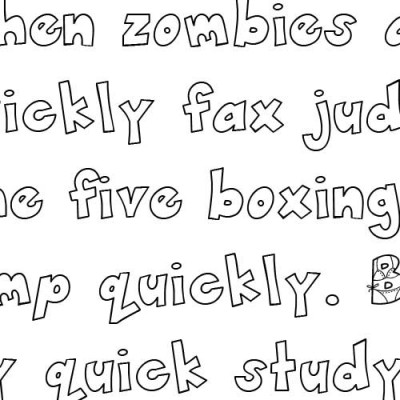 hen zombies
ickly fax jud
e five boxing
mp quickly. B
y quick study